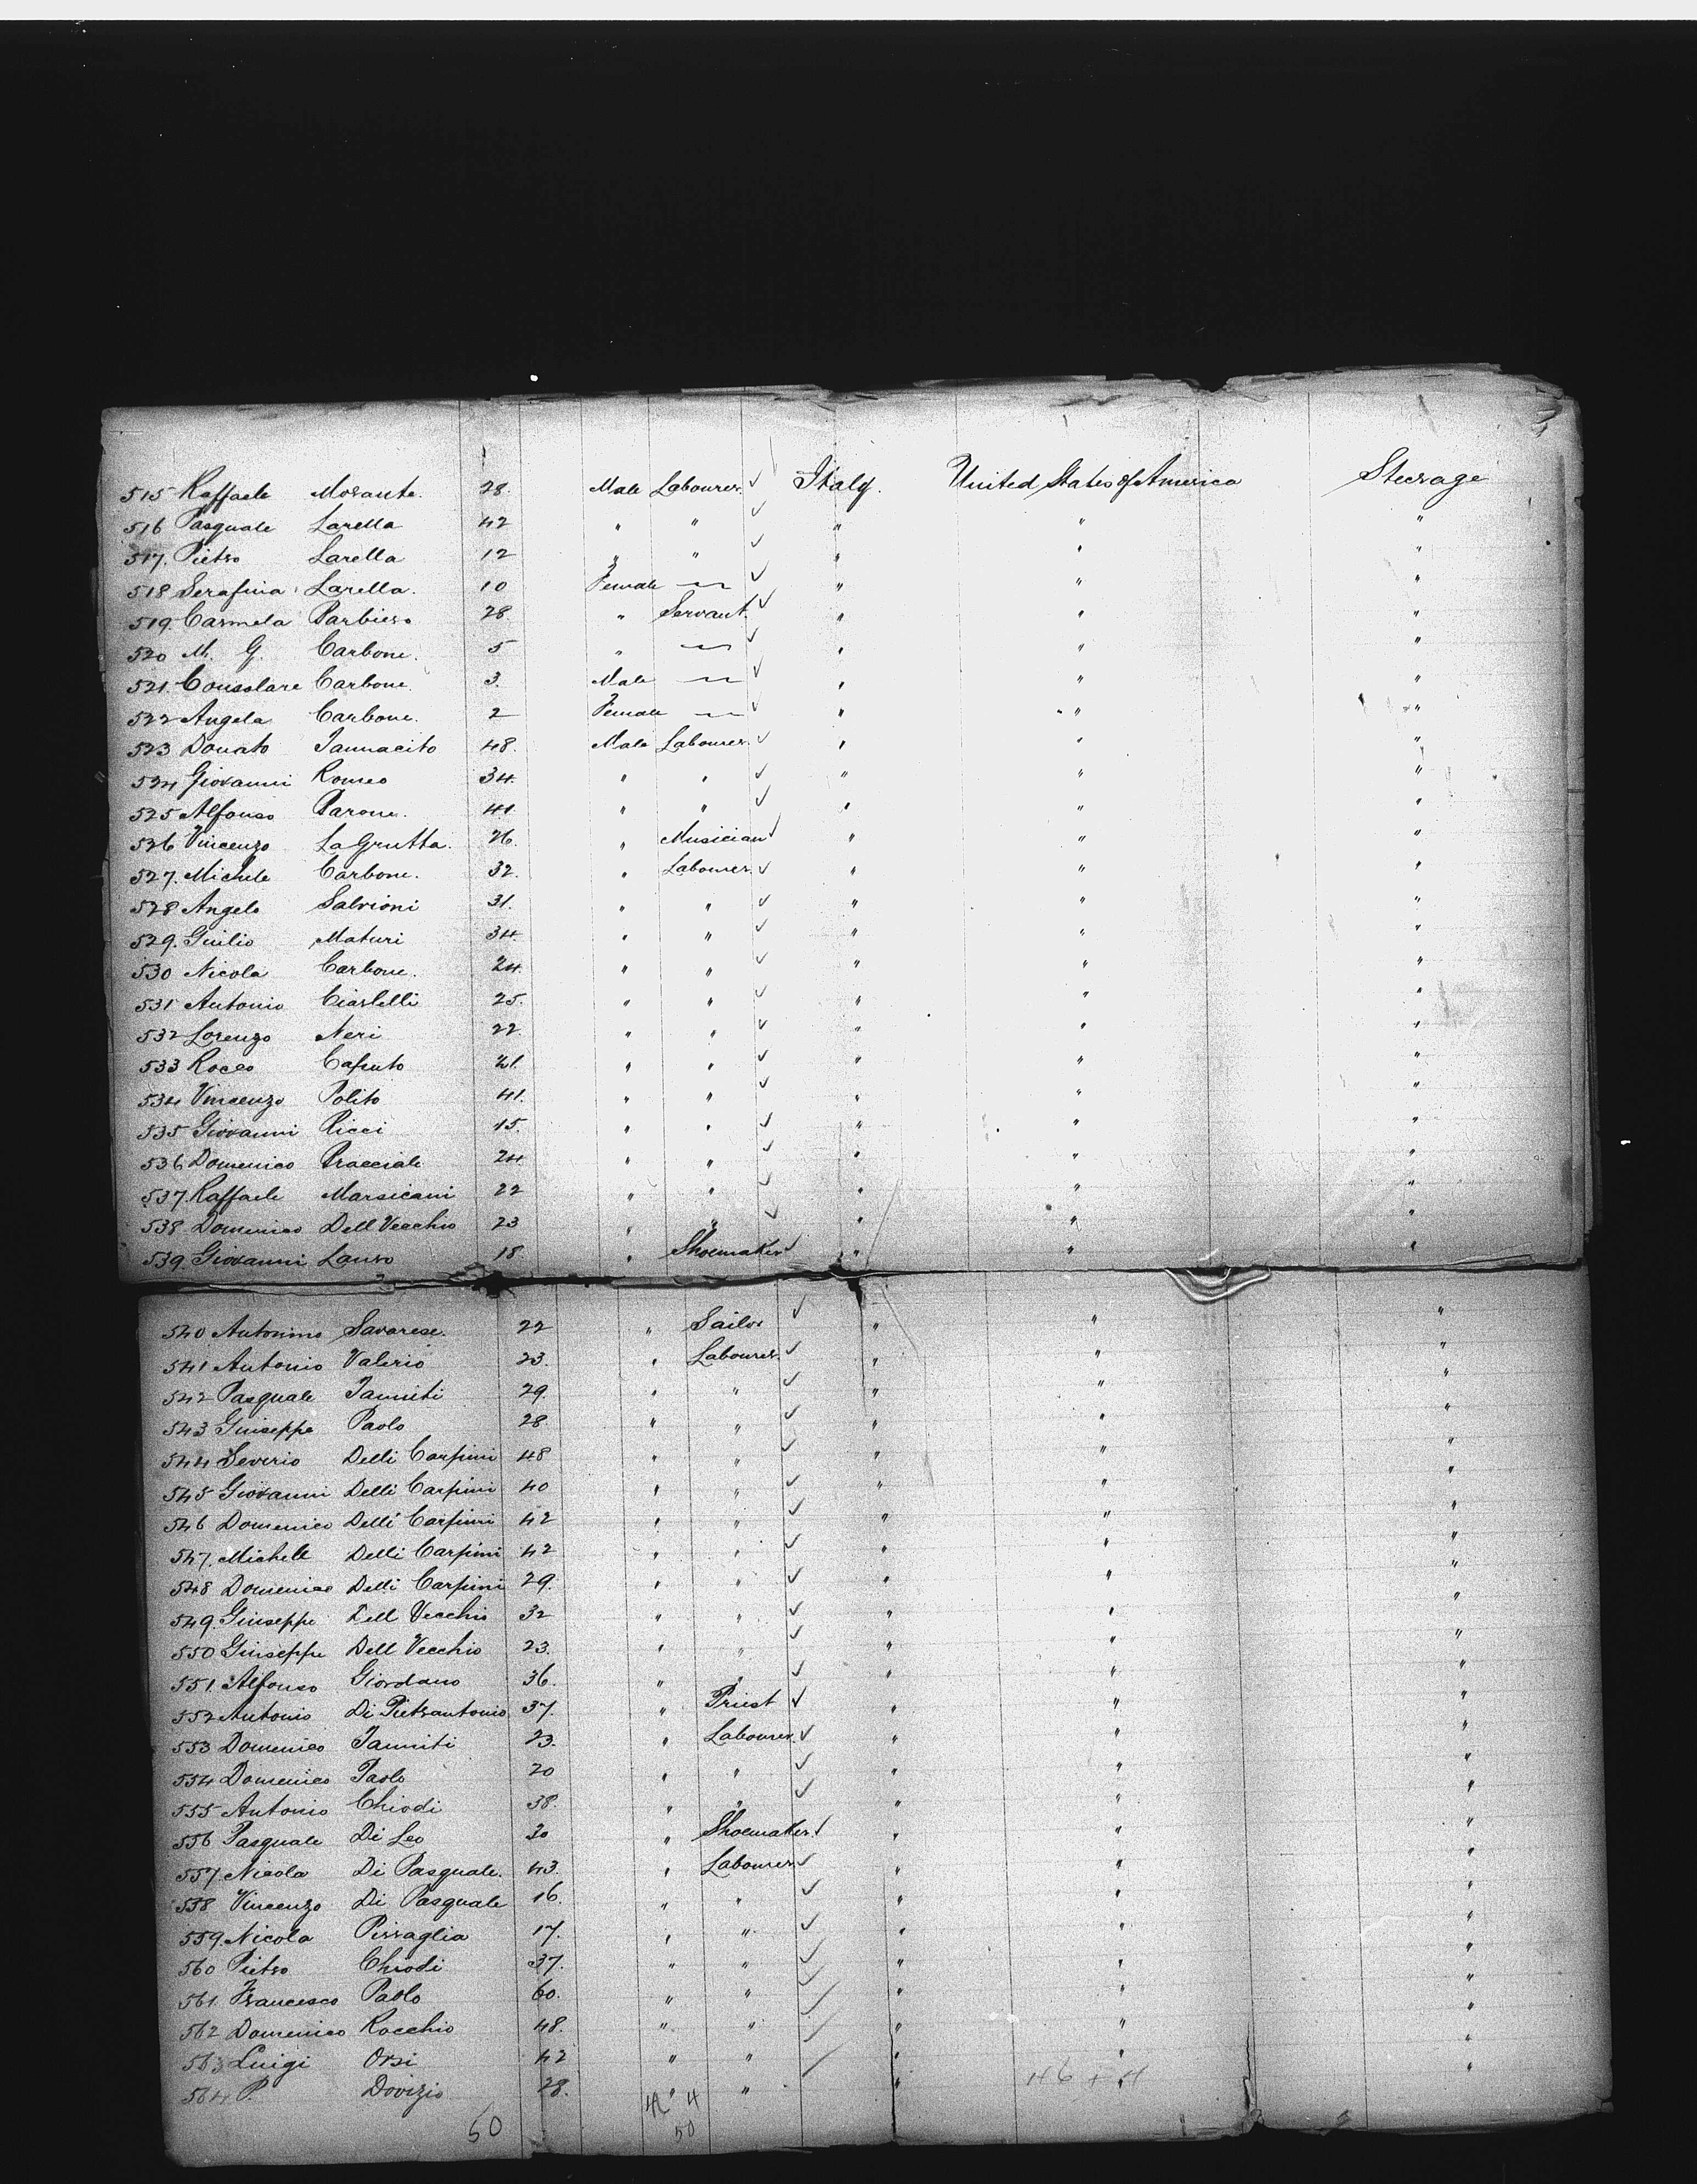 515 Raffaele Morante. 28. Male Labourer. ✓ Italy. United States of America Steerage
516 Pasquale Larella 42 " " ✓ " " "
517. Pietro Larella 12 " " ✓ " " "
518 Serafina Larella. 10 Female — ✓ " " "
519. Carmela Barbiero 28. " Servant. ✓ " " "
520 M. G. Carbone. 5 " — ✓ " " "
521. Consolare Carbone. 3. Male — ✓ " " "
522 Angela Carbone. 2 Female — ✓ " " "
523 Donato Iannacito 48. Male Labourer. ✓ " " "
524 Giovanni Romeo 34. " " ✓ " " "
525 Alfonso Barone. 41. " " ✓ " " "
526 Vincenzo La Grutta. 26. " Musician ✓ " " "
527. Michele Carbone. 32. " Labourer. ✓ " " "
528 Angelo Salvioni 31. " " ✓ " " "
529. Guilio Maturi 34. " " ✓ " " "
530 Nicola Carbone. 24. " " ✓ " " "
531 Antonio Ciarlelli 25. " " ✓ " " "
532 Lorenzo Neri 22. " " ✓ " " "
533 Rocco Caputo 21. " " ✓ " " "
534 Vincenzo Polito 41. " " ✓ " " "
535 Giovanni Ricci 45. " " ✓ " " "
536 Domenico Bracciale 24. " " ✓ " " "
537. Raffaele Marsicani 22 " " ✓ " " "
538 Domenico Dell Vecchio 23 " " ✓ " " "
539 Giovanni Lauro 18. " Shoemaker ✓ " " "
540 Antonino Savarese. 22 " Sailor ✓ " " "
541 Antonio Valerio 23. " Labourer. ✓ " " "
542 Pasquale Ianniti 29. " " ✓ " " "
543 Giuseppe Paolo 28. " " ✓ " " "
544 Severio Delli Carpini 48 " " ✓ " " "
545 Giovanni Delli Carpini 40 " " ✓ " " "
546 Domenico Delli Carpini 42 " " ✓ " " "
547. Michele Delli Carpini 42 " " ✓ " " "
548 Domenico Delli Carpini 29. " " ✓ " " "
549. Giuseppe Dell Vecchio 32 " " ✓ " " "
550 Giuseppe Dell Vecchio 23. " " ✓ " " "
551. Alfonso Giordano 36. " " ✓ " " "
552 Antonio Di Pietrantonio 37. " Priest ✓ " " "
553 Domenico Ianniti 23. " Labourer. ✓ " " "
554 Domenico Paolo 20 " " ✓ " " "
555 Antonio Chiodi 38. " " ✓ " " "
556 Pasquale Di Leo 30 " Shoemaker. ✓ " " "
557. Nicola Di Pasquale. 43. " Labourer ✓ " " "
558 Vincenzo Di Pasquale 16. " " ✓ " " "
559. Nicola Pirraglia 17. " " ✓ " " "
560 Pietro Chiodi 37. " " ✓ " " "
561. Francesco Paolo 60. " " ✓ " " "
562 Domenico Rocchio 48. " " / " " "
563 Luigi Orsi 42 " " / " " "
564 P. Dovizio 28. " " / " " "
46 + 4
50 4
50